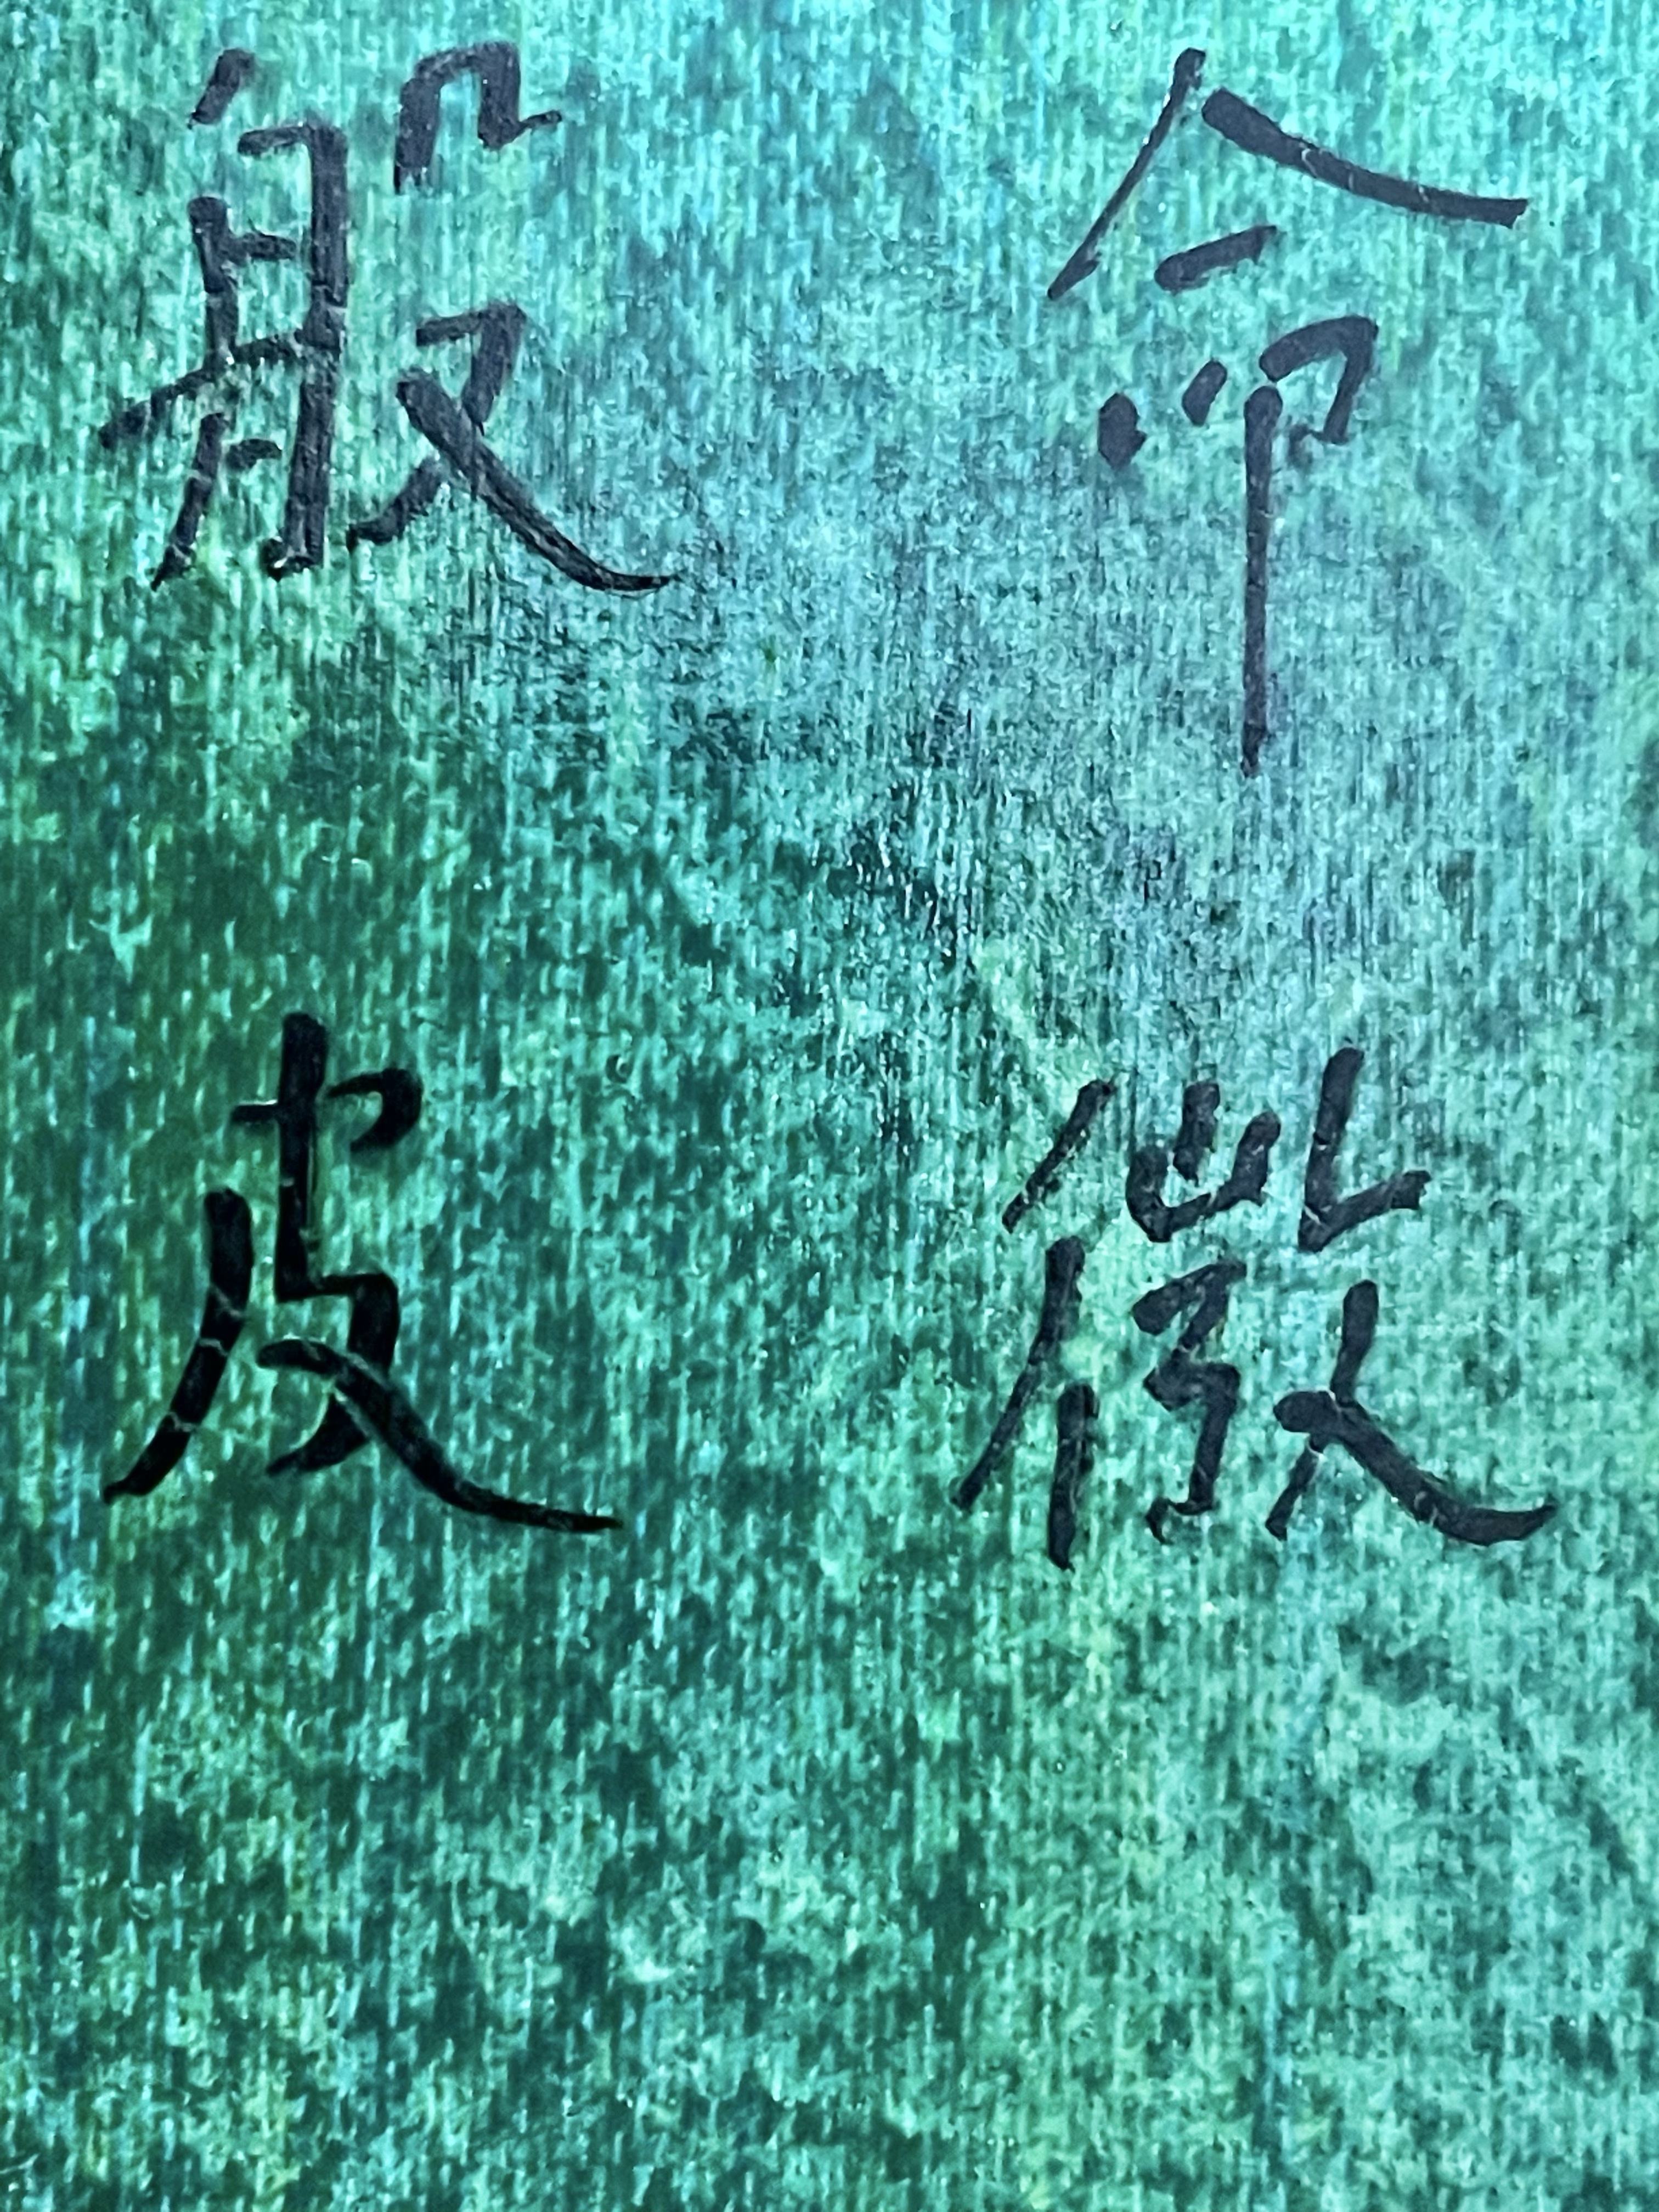 般 命
皮 微